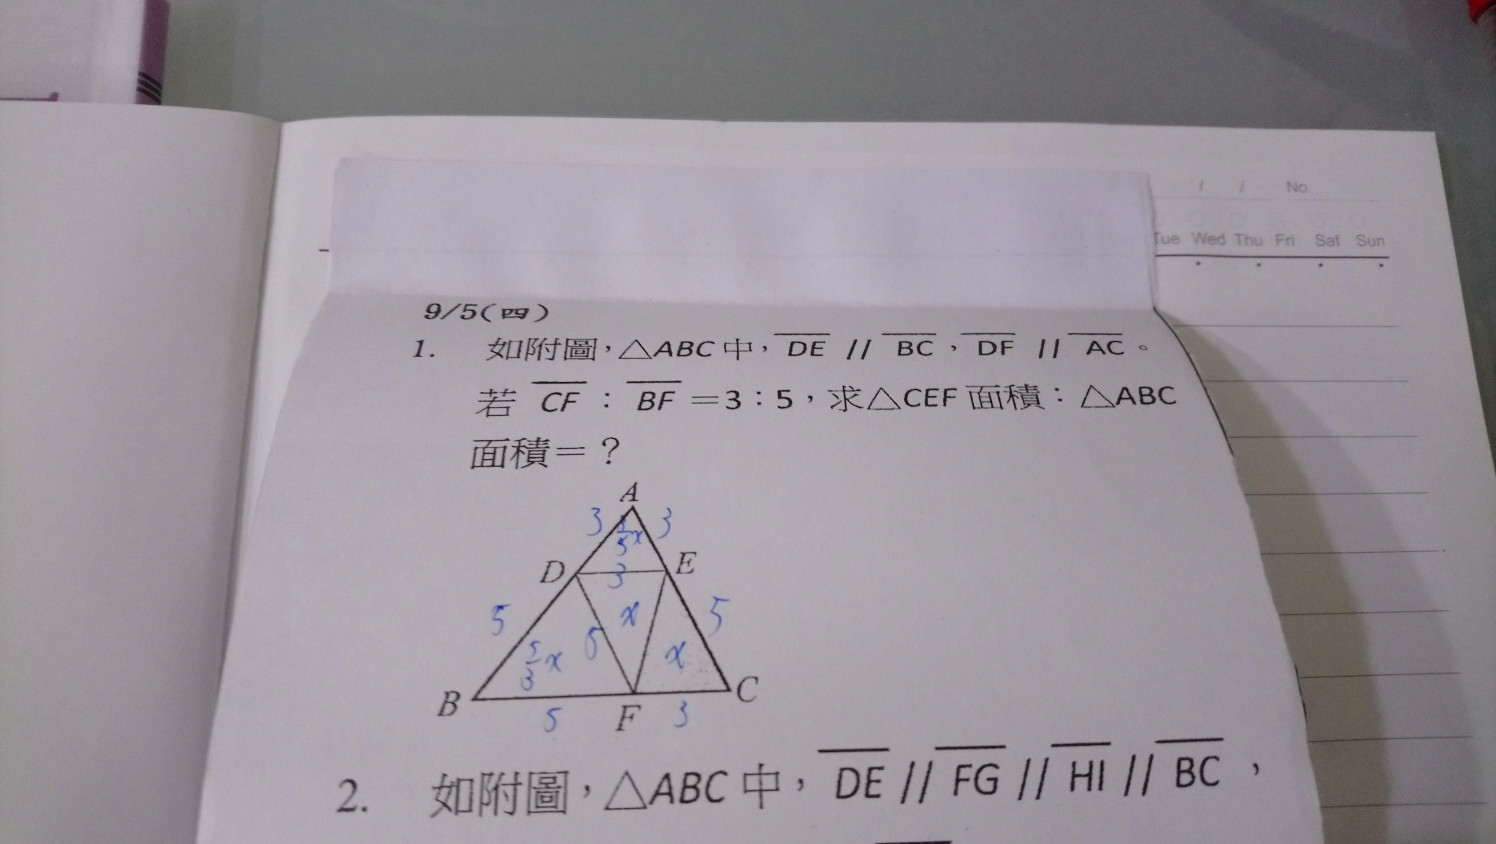 / / No
Tue Wed Thu Fri Sat Sun
9/5(四)
1. 如附圖，△ABC中，DE // BC，DF // AC。
若 CF：BF＝3：5，求△CEF面積：△ABC
面積＝？
A
3 3/5x 3
D 3 E
5 x 5
5/3x x
B 5 F 3 C
2. 如附圖，△ABC中，DE // FG // HI // BC，